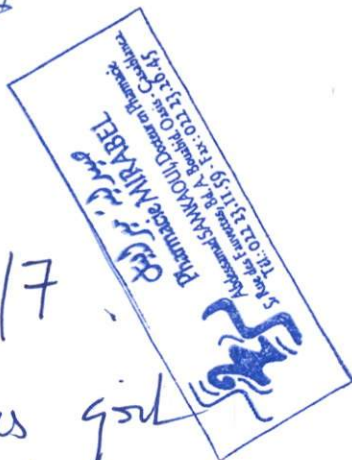 صيدلية ميرابيل
Pharmacie MIRABEL
Abdessamad SAMKAOUI, Docteur en Pharmacie
5, Rue des Fauvettes, Bd. A. Bouabid, Oasis - Casablanca
Tél.: 022.23.11.59 - Fax: 022.23.26.45
/7